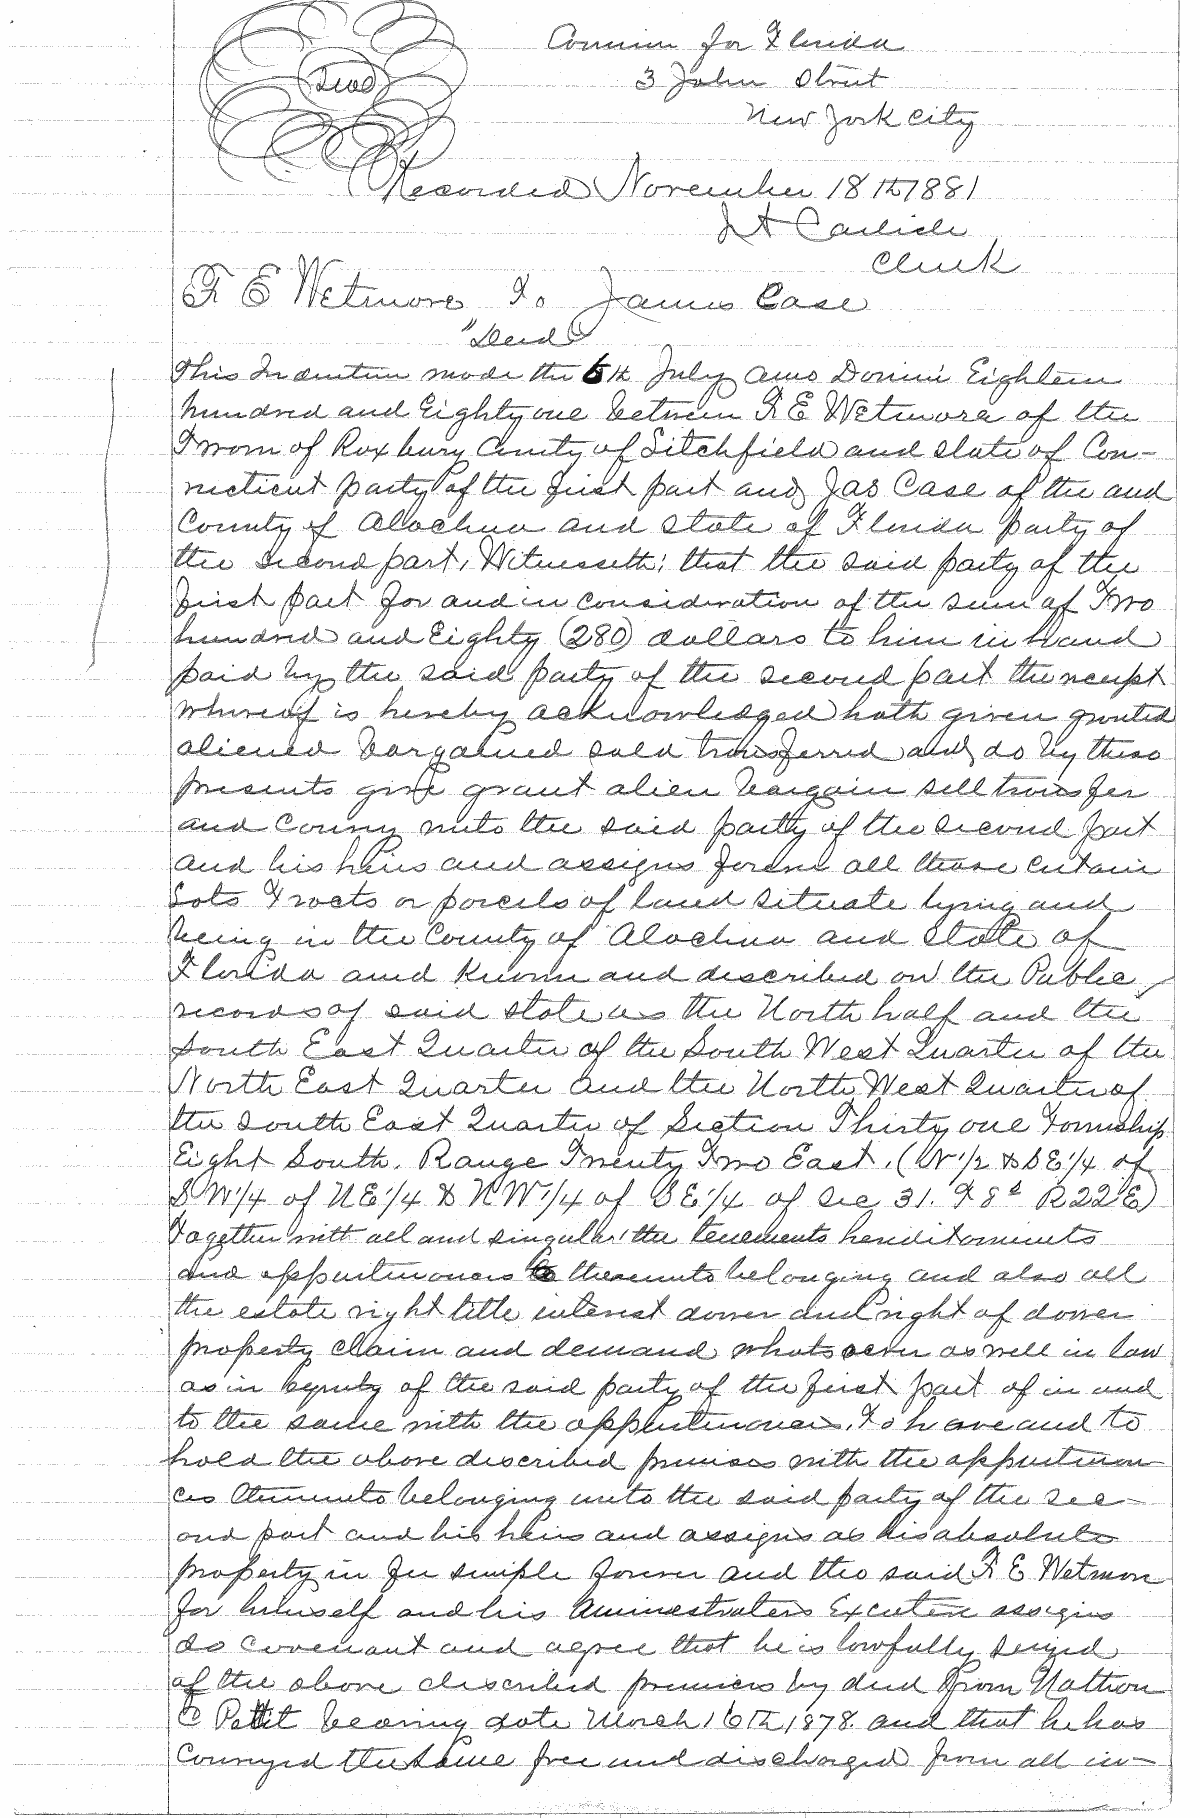 Seal
Commr for Florida
3 John Street
New York City
Recorded November 18th 1881
J A Carlisle
Clerk
F E Wetmore To James Case
"Deed"
This Indenture made the 6th July Anno Domini Eighteen
hundred and Eighty one between F E Wetmore of the
Town of Roxbury County of Litchfield and State of Con-
necticut party of the first part and Jas Case of the and
County of Alachua and State of Florida party of
the second part, Witnesseth; that the said party of the
first part for and in consideration of the sum of Two
hundred and Eighty (280) dollars to him in hand
paid by the said party of the second part the receipt
whereof is hereby acknowledged hath given granted
aliened bargained sold transferred and do by these
presents give grant alien bargain sell transfer
and convey unto the said party of the second part
and his heirs and assigns forever all those certain
Lots Tracts or parcels of land situate lying and
being in the County of Alachua and State of
Florida and known and described on the Public
records of said state as the North half and the
South East Quarter of the South West Quarter of the
North East Quarter and the North West Quarter of
the South East Quarter of Section Thirty one Township
Eight South. Range Twenty Two East. (N 1/2 & SE 1/4 of
SW 1/4 of NE 1/4 & NW 1/4 of SE 1/4 of Sec 31. T 8 S R 22 E)
Together with all and singular the tenements hereditaments
and appurtenances thereunto belonging and also all
the estate right title interest dower and right of dower
property claim and demand whatsoever as well in law
as in equity of the said party of the first part of in and
to the same with the appurtenances. To have and to
hold the above described premises with the appurtenan
ces thereunto belonging unto the said party of the sec-
ond part and his heirs and assigns as his absolute
property in fee simple forever and the said F E Wetmore
for himself and his Aministrators Excutors assigns
do covenant and agree that he is lawfully seized
of the above described premises by deed from Nathan
C Pettit bearing date March 16th 1878. and that he has
conveyed the same free and discharged from all in-